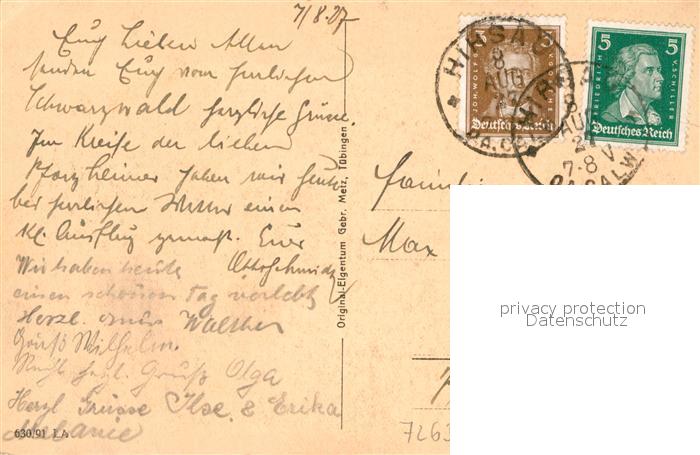 7/8.27
Euch Lieben Allen
senden Euch vom herrlichen
Schwarzwald herzliche Grüsse.
Im Kreise der lieben
Pforzheimer haben wir heute
bei herrlichem Wetter einen
kl. Ausflug gemacht. Euer
Otto Schmidt
Wir haben heute
einen schönen Tag verlebt
Herzl. Walther
Gruß Wilhelm.
Recht herzl. Gruß Olga
Herzl Grüsse Ilse & Erika
Melanie
630/91 L.A.
Original-Eigentum Gebr. Metz, Tübingen
HIRSAU
8
AUG
5
Deutsches Reich
5 5
FRIEDRICH V. SCHILLER
Deutsches Reich
HIRSAU
8
AUG
27
7-8 V
OA. CALW
Familie
Max
7263
privacy protection
Datenschutz